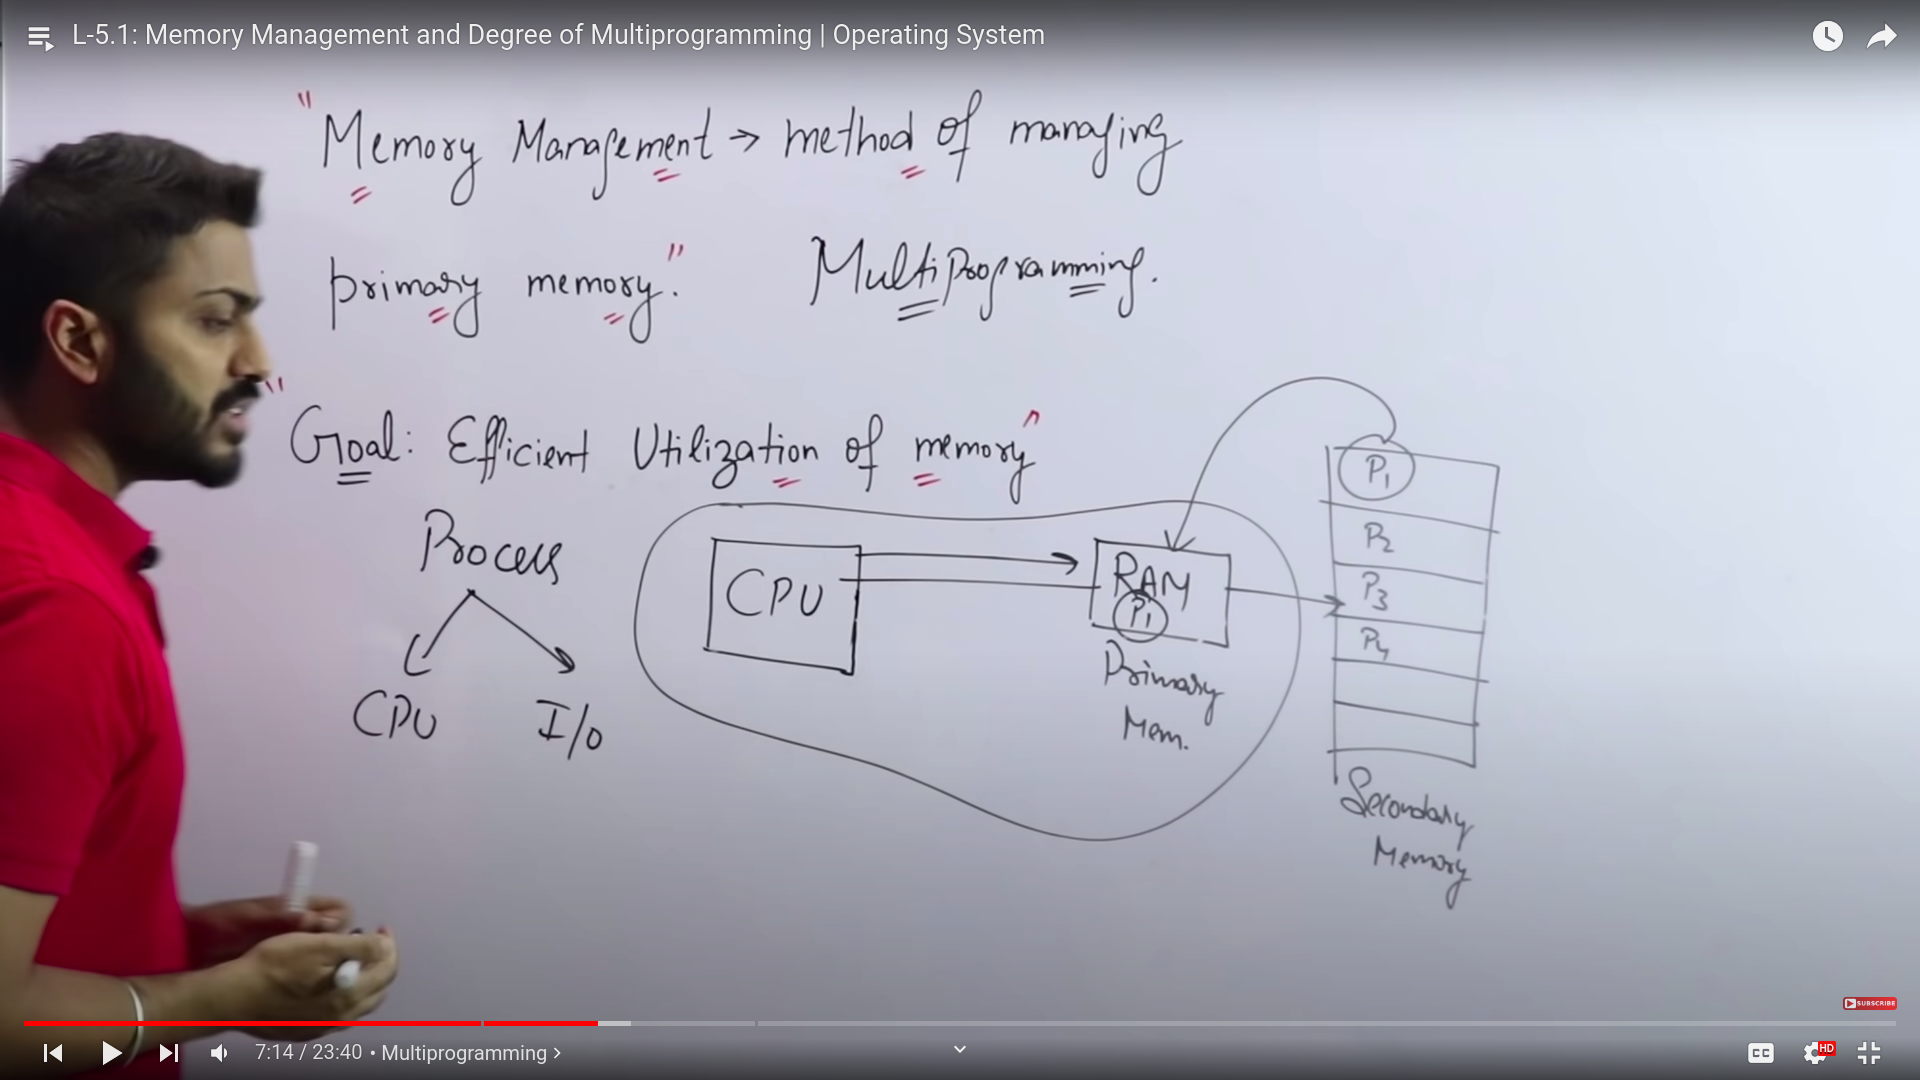 L-5.1: Memory Management and Degree of Multiprogramming | Operating System
"Memory Management → method of managing
primary memory."
MultiProgramming.
"Goal: Efficient Utilization of memory"
Process
CPU I/O
CPU
RAM
P1
Primary
Mem.
P1
P2
P3
P4
Secondary
Memory
SUBSCRIBE
7:14 / 23:40 • Multiprogramming >
CC
HD